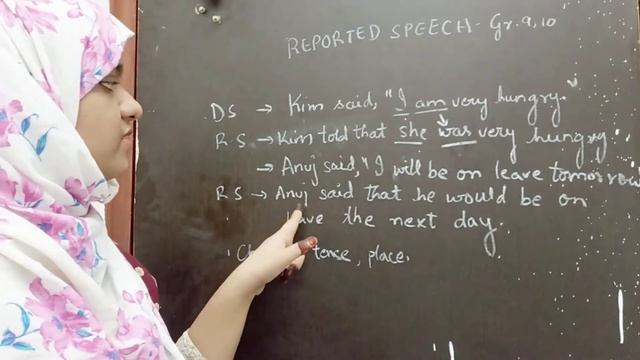 REPORTED SPEECH - Gr. 9, 10
DS → Kim said, "I am very hungry."
RS → Kim told that she was very hungry
→ Anuj said, "I will be on leave tomorrow
RS → Anuj said that he would be on
the next day.
tense, place.